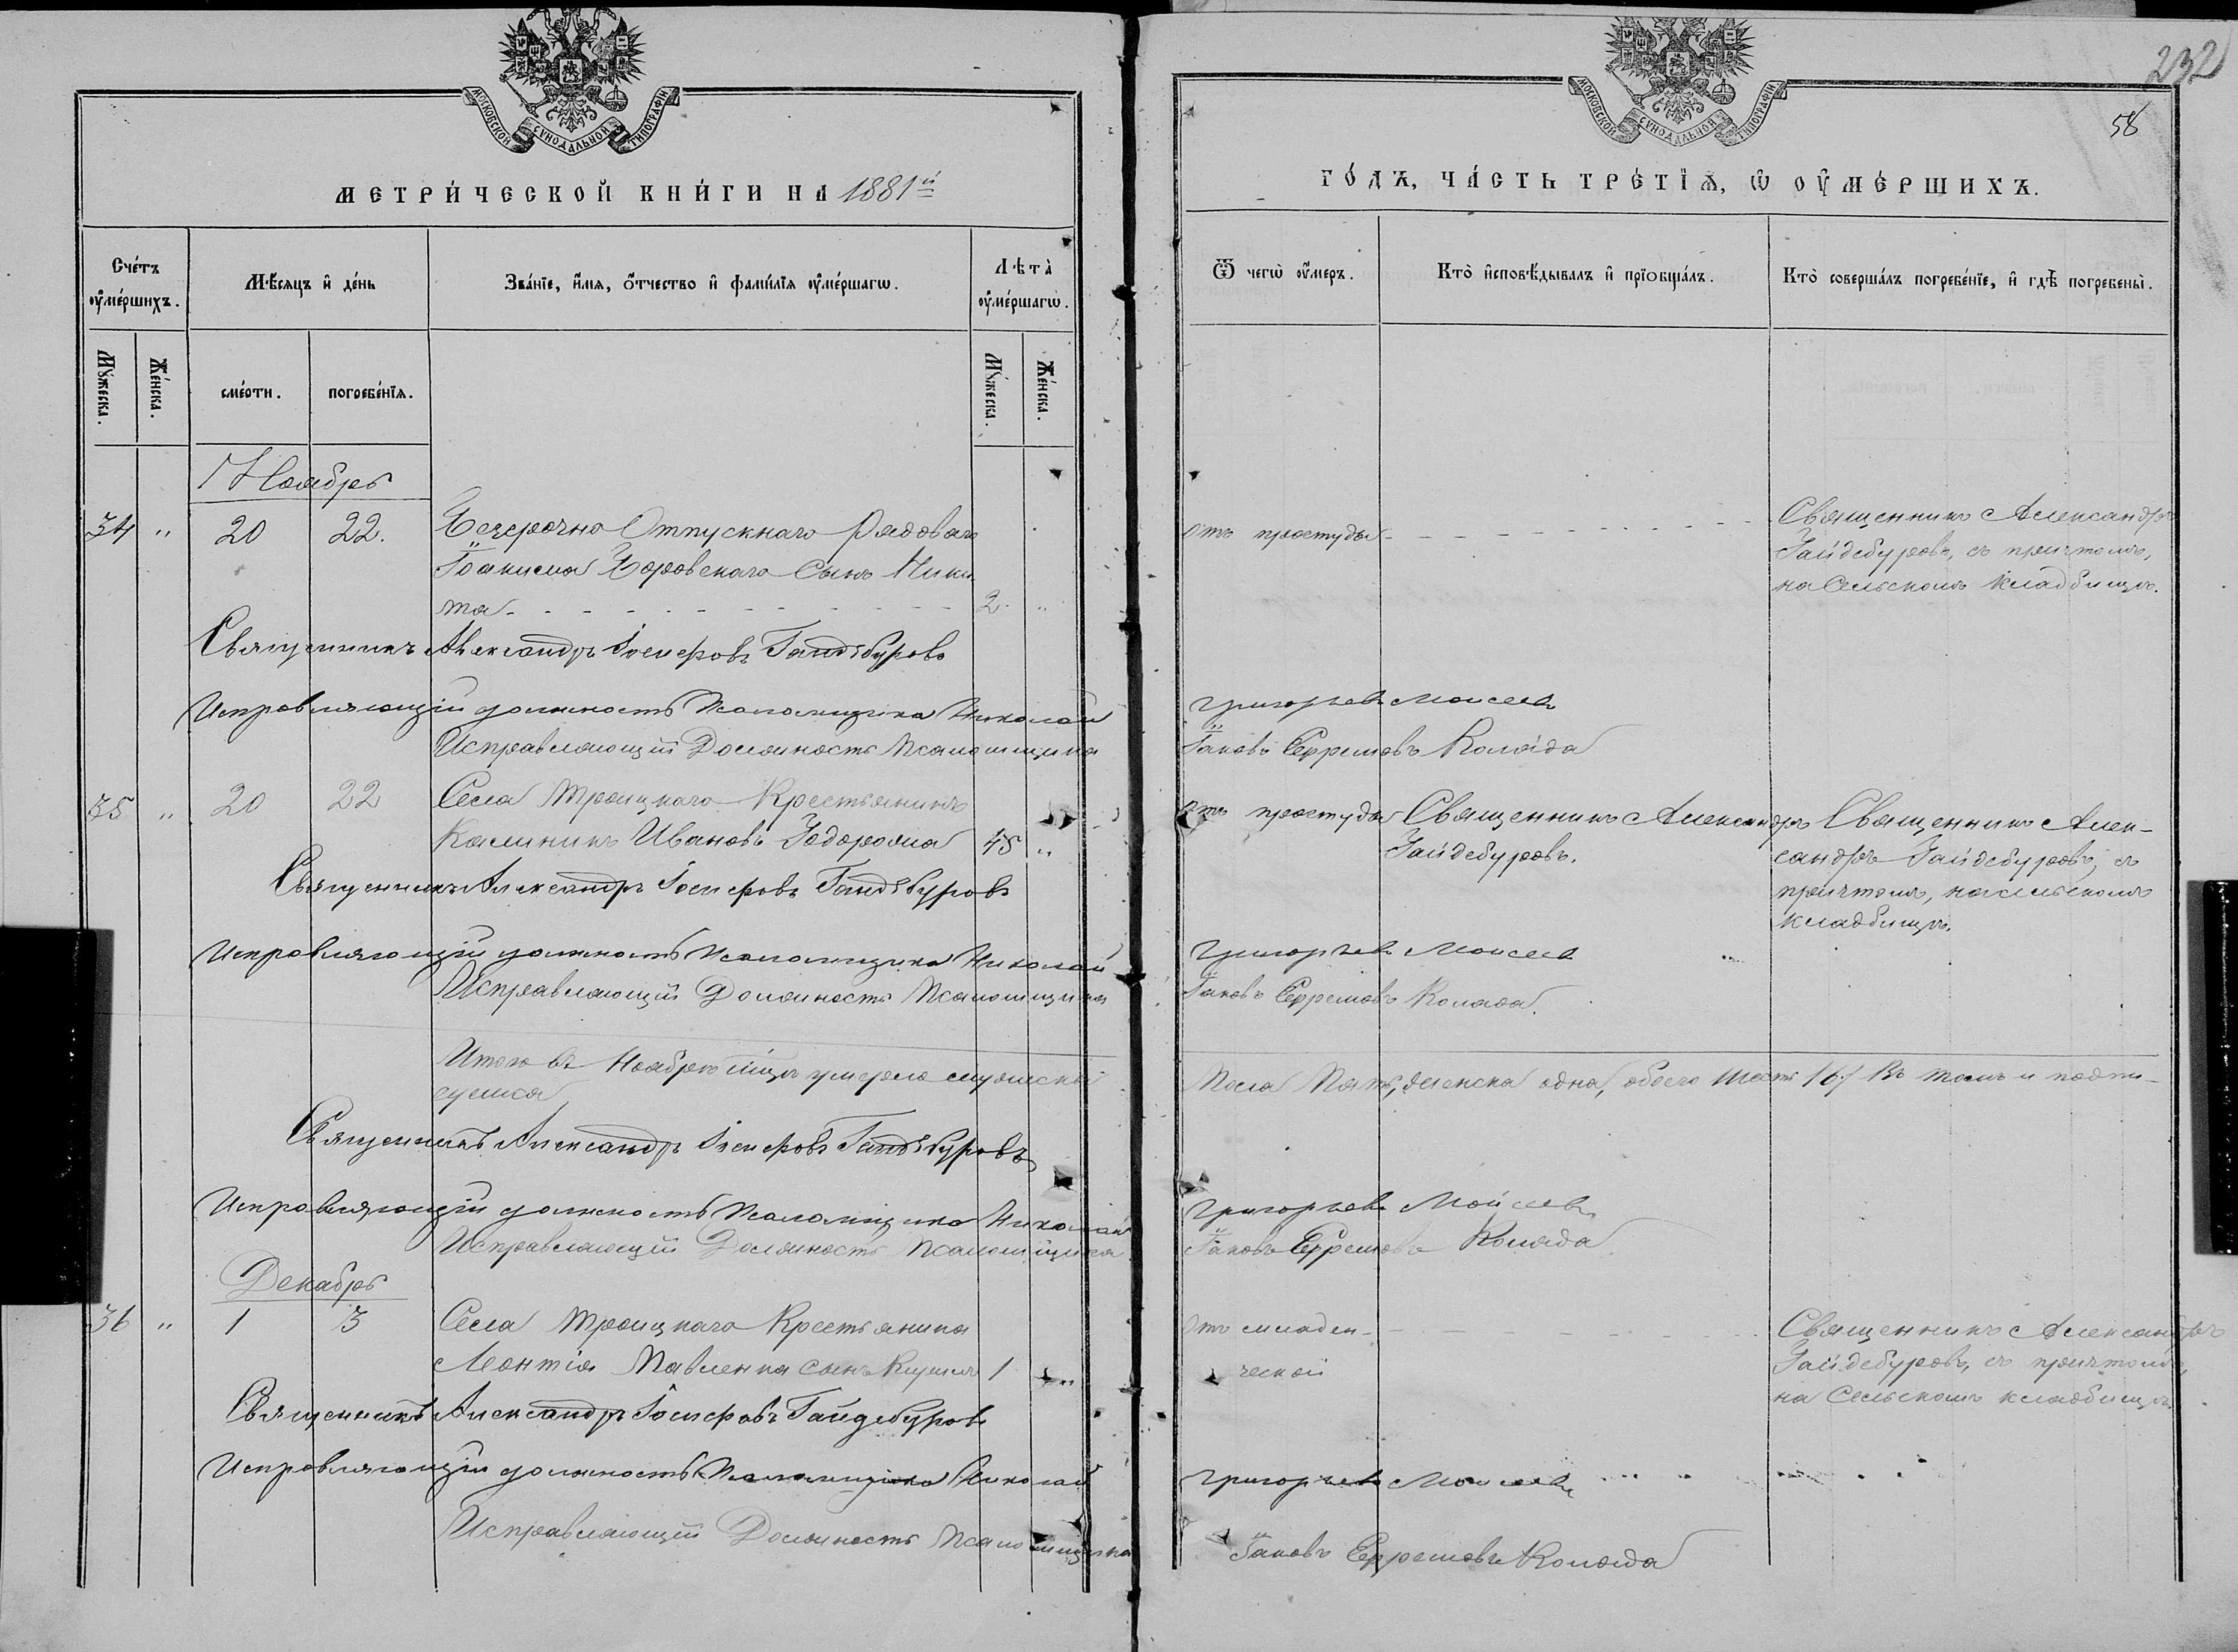 МОСКОВСКОЙ СѴНОДАЛЬНОЙ ТИПОГРАФІИ
МЕТРИ́ЧЕСКОЙ КНИ́ГИ НА 1881й
Сче́тъ ᲂу҆ме́ршихъ.
Мѣ́сяцъ и҆ де́нь
Зва́нїе, и҆́мя, ѻ҆́тчество и҆ фами́лїя ᲂу҆ме́ршагѡ.
Лѣта̀ ᲂу҆ме́ршагѡ.
Мꙋ́жеска.
Же́нска.
сме́рти.
погребе́нїя.
Мꙋ́жеска.
Же́нска.
Ноябрь
34 " 20 22. Безсрочно Отпускнаго Рядоваго
Іоакима Боровскаго Сынъ Ники
та - - - - - - - - - - - 2 "
Священникъ Александръ Іосифовъ Гайдебуровъ
Исправляющій должность Псаломщика Николай
Исправляющій Должность Псаломщика
35 " 20 22 Села Троицкаго Крестьянинъ
Калиникъ Ивановъ Тодорома 45 "
Священникъ Александръ Іосифовъ Гайдебуровъ
Исправляющій должность Псаломщика Николай
Исправляющій Должность Псаломщика
Итого въ Ноябрѣ мцѣ умерло мужеска
суемся
Священникъ Александръ Іосифовъ Гайдебуровъ
Исправляющій должность Псаломщика Николай
Исправляющій Должность Псаломщика
Декабрь
36 " 1 3 Села Троицкаго Крестьянина
Леонтія Павленка сынъ 1 "
Священникъ Александръ Іосифовъ Гайдебуровъ
Исправляющій должность Псаломщика Николай
Исправляющій Должность Псаломщика
232
58
МОСКОВСКОЙ СѴНОДАЛЬНОЙ ТИПОГРАФІИ
ГО́ДЪ, ЧА́СТЬ ТРЕ́ТЇѦ, Ѡ ОУ҆МЕ́РШИХЪ.
Ѿ чегѡ̀ ᲂу҆́меръ.
Кто̀ и҆сповѣ́дывалъ и҆ прїобща́лъ.
Кто̀ соверша́лъ погребе́нїе, и҆ гдѣ̀ погребены̀.
отъ простуды - - - - - - - - Священникъ Александръ
Гайдебуровъ, съ причтомъ,
на Сельскомъ кладбищѣ.
Григорьевъ Моисеевъ
Іаковъ Ефремовъ Коляда
отъ простуды Священникъ Александръ Священникъ Алек-
Гайдебуровъ. сандръ Гайдебуровъ, съ
причтомъ, на сельскомъ
кладбищѣ.
Григорьевъ Моисеевъ
Іаковъ Ефремовъ Коляда.
Пола Пять, женска одна, обоего шесть /6/ Въ томъ и подпи-
Григорьевъ Моисеевъ
Іаковъ Ефремовъ Коляда
Отъ младен- - - - - - Священникъ Александръ
ческой Гайдебуровъ, съ причтомъ,
на Сельскомъ кладбищѣ.
Григорьевъ Моисеевъ
Іаковъ Ефремовъ Коляда